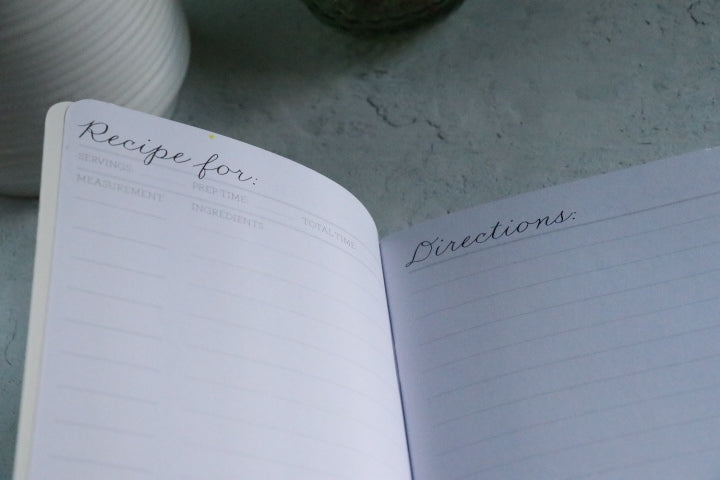 Recipe for:
SERVINGS: PREP TIME: TOTAL TIME:
MEASUREMENT INGREDIENTS
Directions: